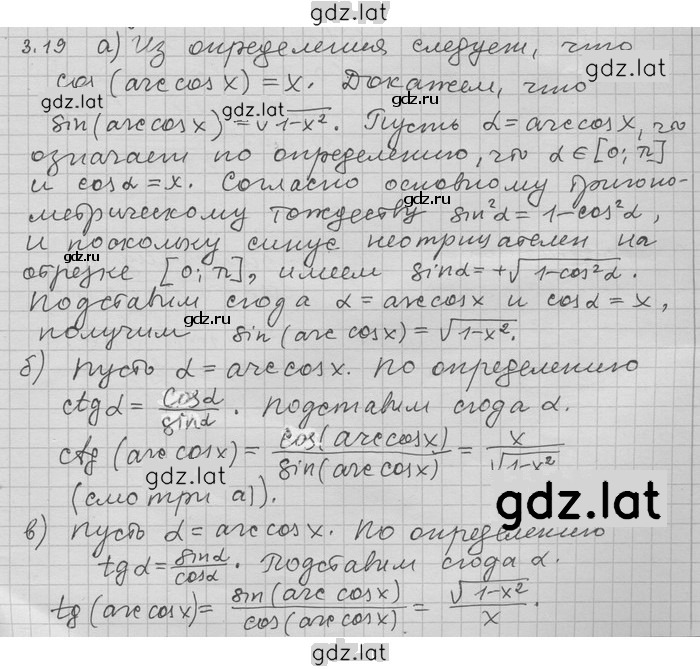 gdz.lat
3.19 а) Из определения следует, что
cos (arccos x) = x. Докажем, что
gdz.lat
gdz.lat
sin(arccos x) = √1-x². Пусть α = arccos x, что
означает по определению, что α ∈ [0; π]
и cos α = x. Согласно основному тригоно-
метрическому тождеству sin²α = 1-cos²α,
и поскольку синус неотрицателен на
отрезке [0; π], имеем sin α = +√1-cos²α.
Подставим сюда α = arccos x и cos α = x,
gdz.lat
получим sin (arccos x) = √1-x².
б) Пусть α = arccos x. По определению
ctg α = cos α / sin α. Подставим сюда α.
ctg (arccos x) = cos(arccos x) / sin(arccos x) = x / √1-x²
gdz.lat
(смотри а)).
gdz.lat
в) Пусть α = arccos x. По определению
tg α = sin α / cos α. Подставим сюда α.
gdz.lat
tg (arccos x) = sin (arccos x) / cos (arccos x) = √1-x² / x.
gdz.lat